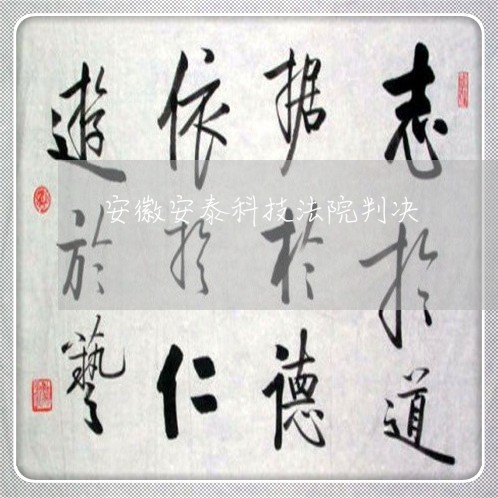 志於道
据於德
依於仁
遊於藝
安徽安泰科技法院判决